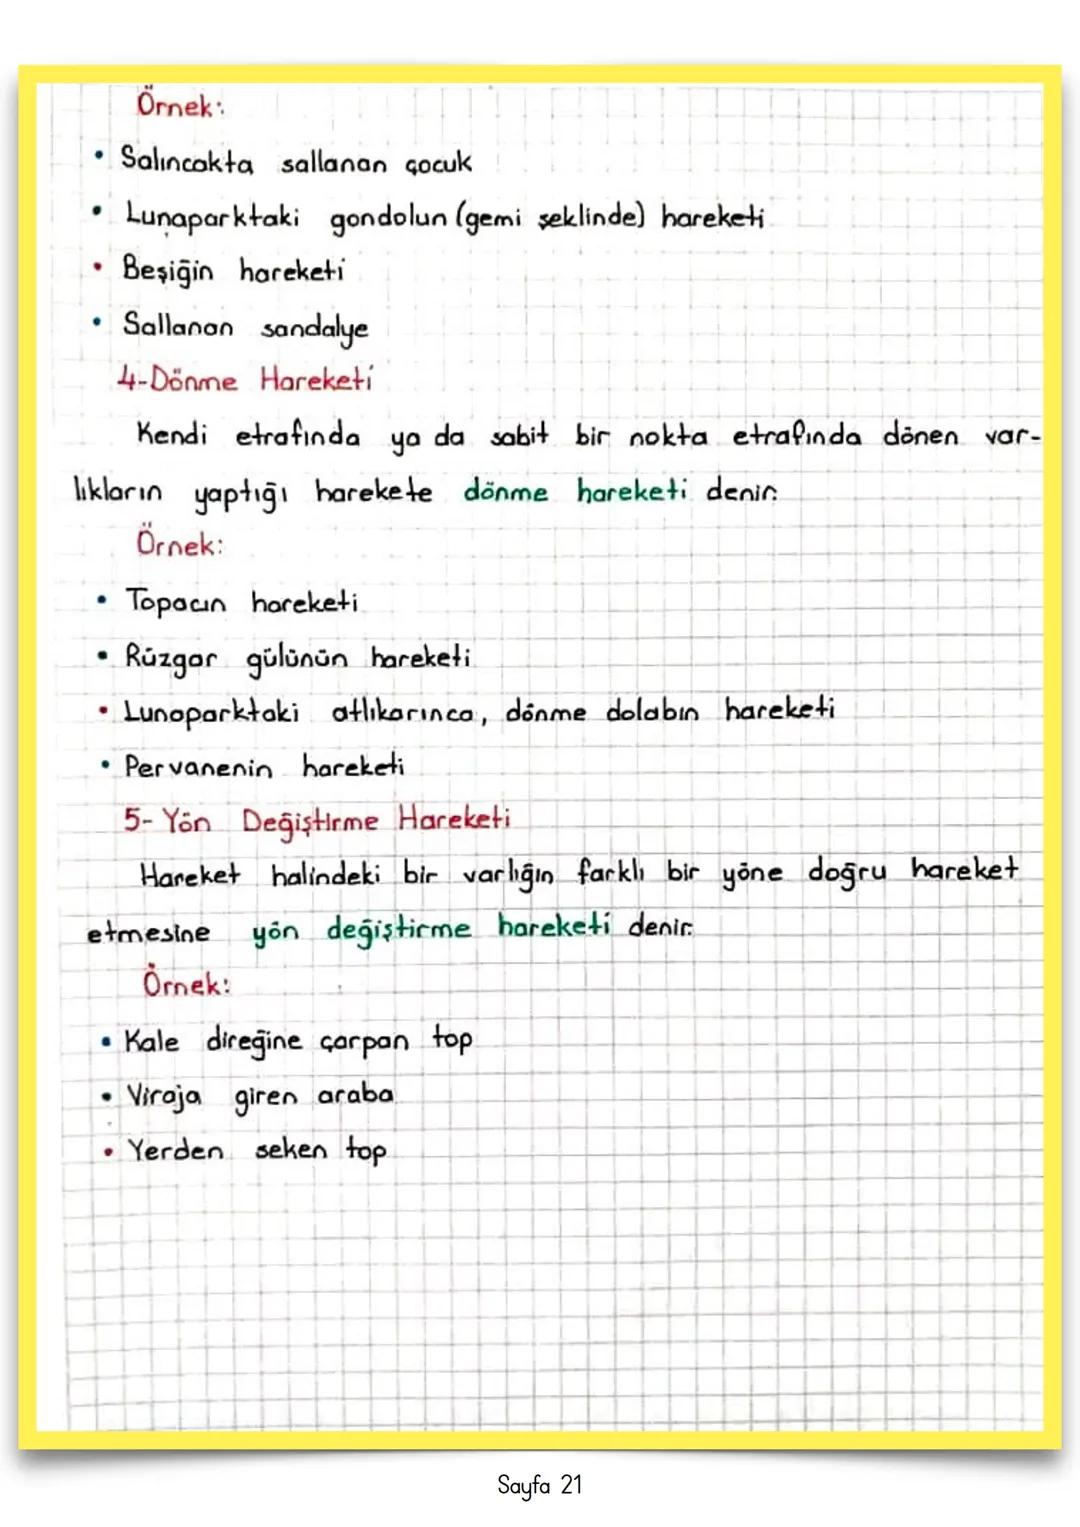 Örnek:
• Salıncakta sallanan çocuk
• Lunaparktaki gondolun (gemi şeklinde) hareketi
• Beşiğin hareketi
• Sallanan sandalye
4-Dönme Hareketi
Kendi etrafında ya da sabit bir nokta etrafında dönen var-
lıkların yaptığı harekete dönme hareketi denir.
Örnek:
• Topacın hareketi
• Rüzgar gülünün hareketi
• Lunaparktaki atlıkarınca, dönme dolabın hareketi
• Pervanenin hareketi
5- Yön Değiştirme Hareketi
Hareket halindeki bir varlığın farklı bir yöne doğru hareket
etmesine yön değiştirme hareketi denir.
Örnek:
• Kale direğine çarpan top
• Viraja giren araba
• Yerden seken top
Sayfa 21